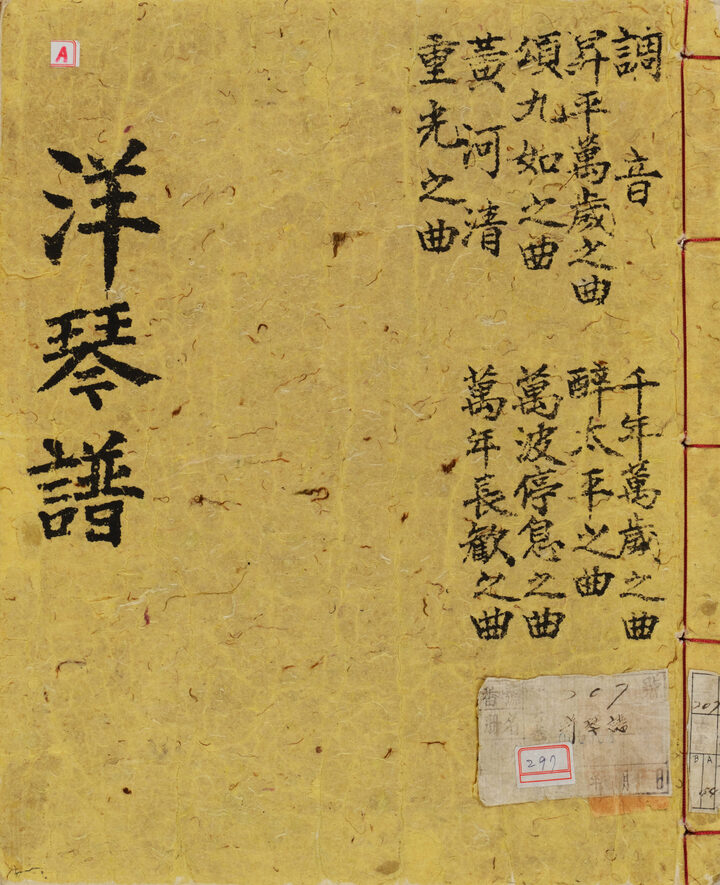 調音
昇平萬歲之曲
頌九如之曲
黃河清
重光之曲
千年萬歲之曲
醉太平之曲
萬波停息之曲
萬年長歡之曲
洋琴譜
A
207
297
207
B A